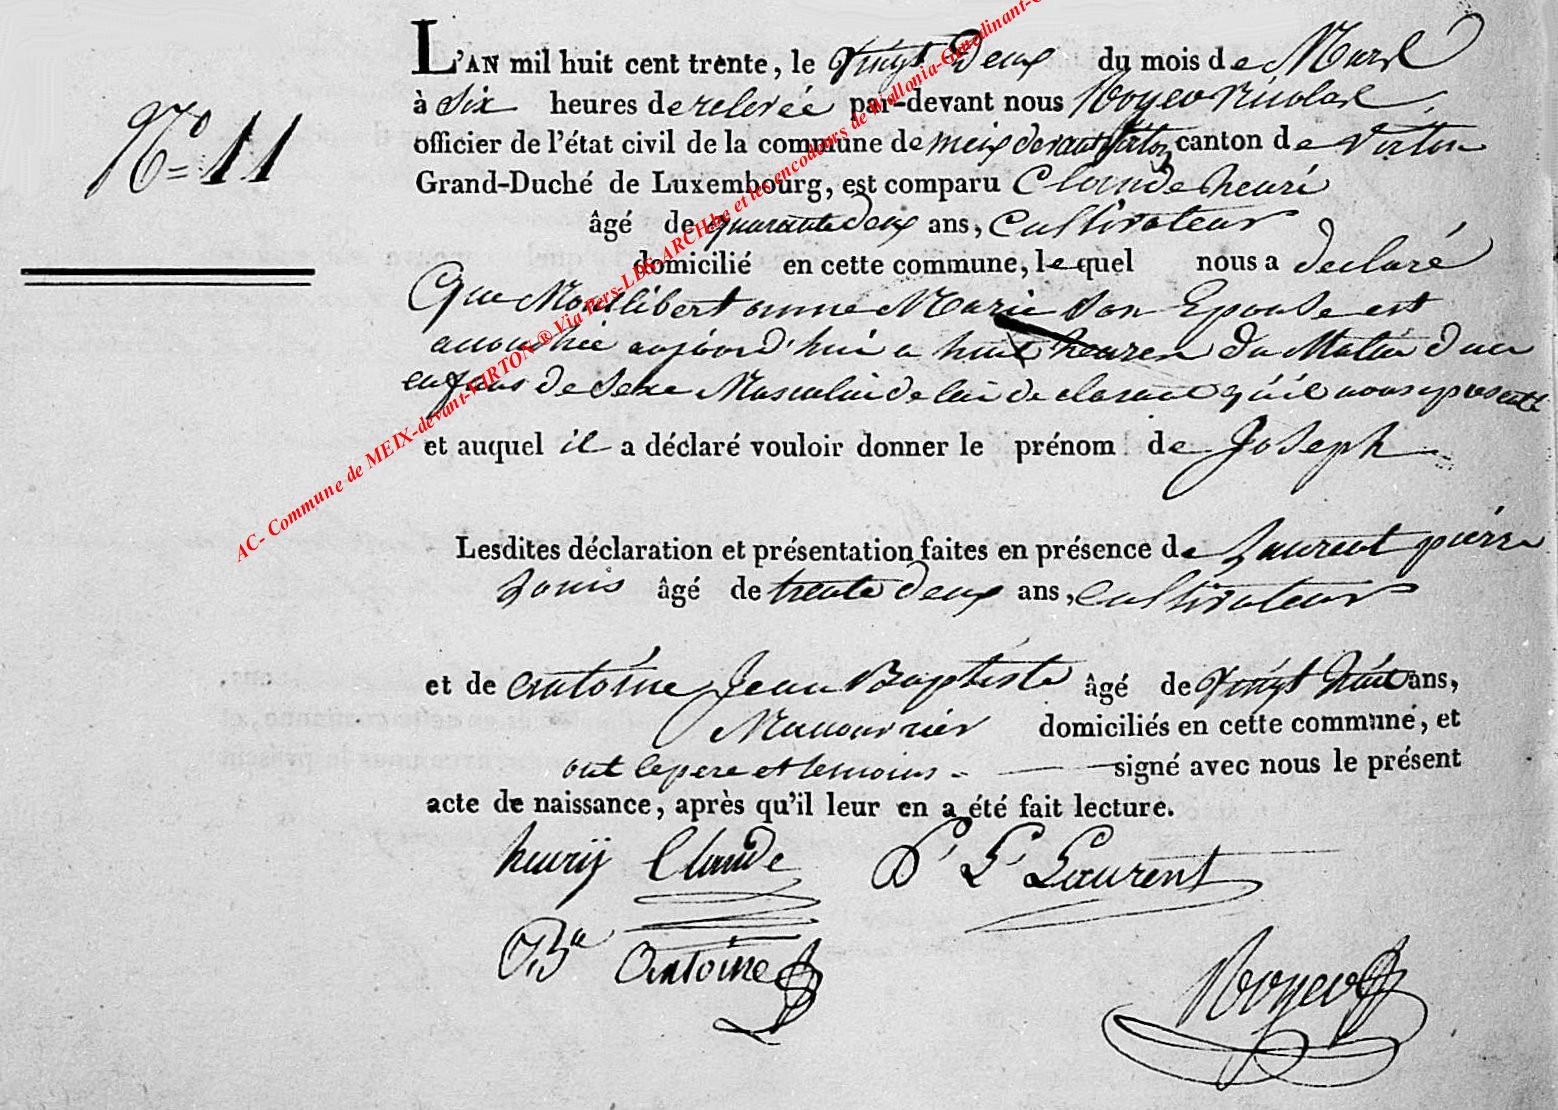 N° 11
L'AN mil huit cent trente, le vingt deux du mois de Mars
à Six heures de relevée par-devant nous Noyer Nicolas
officier de l'état civil de la commune de meix devant virton canton de Virton
Grand-Duché de Luxembourg, est comparu Claude henri
âgé de quarante deux ans, Cultivateur
domicilié en cette commune, lequel nous a declaré
Que Montlibert anne Marie Son Epouse est
accouchée aujourd'hui a huit heures du Matin d'un
enfans de Sexe Masculin de lui declarant qu'il nous presente
et auquel il a déclaré vouloir donner le prénom de Joseph
Lesdites déclaration et présentation faites en présence de Laurent pierre
Louis âgé de trente deux ans, Cultivateur
et de antoine Jean Baptiste âgé de vingt huit ans,
Manouvrier domiciliés en cette commune, et
ont le pere et temoins signé avec nous le présent
acte de naissance, après qu'il leur en a été fait lecture.
henrij Claude P L Laurent
Antoine
Noyer
AC- Commune de MEIX-devant-VIRTON ® Via Pers-LDS-ARCH.be et les encodeurs de Wallonia-Genedinant-